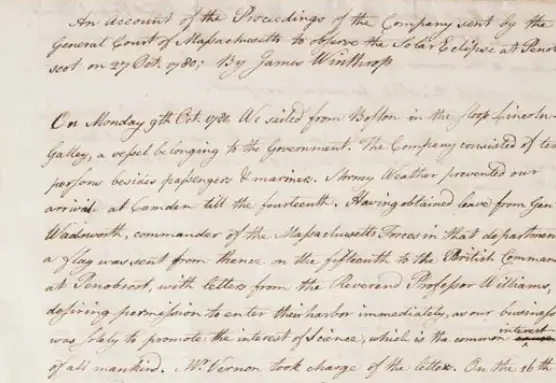 An account of the Proceedings of the Company sent by the
General Court of Massachusetts to observe the Solar Eclipse at Penob
scot on 27 Oct. 1780; By James Winthrop
On Monday 9th Oct. 1780. We sailed from Boston in the sloop Lincoln
Galley, a vessel belonging to the Government. The Company consisted of ten
persons besides passengers & mariners. Stormy Weather prevented our
arrival at Camden till the fourteenth. Having obtained leave from Gen
Wadsworth, commander of the Massachusetts Forces in that departmen
a flag was sent from thence on the fifteenth to the British Comman
at Penobscot, with letters from the Reverend Professor Williams,
desiring permission to enter their harbor immediately, as our business
was solely to promote the interest of Science, which is the common interest
of all mankind. Mr. Vernon took charge of the letter. On the 16th